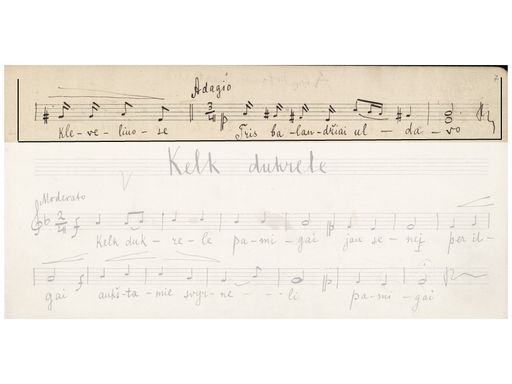 Adagio
7
Kle-ve-liuo-se Tris ba-lan-džiai ul-da-vo
Kelk dukrele
Moderato
Kelk duk-re-le pa-mi-gai jau se-nej per il-
gai aukš-ta-mie svyr-ne---li pa-mi-gai